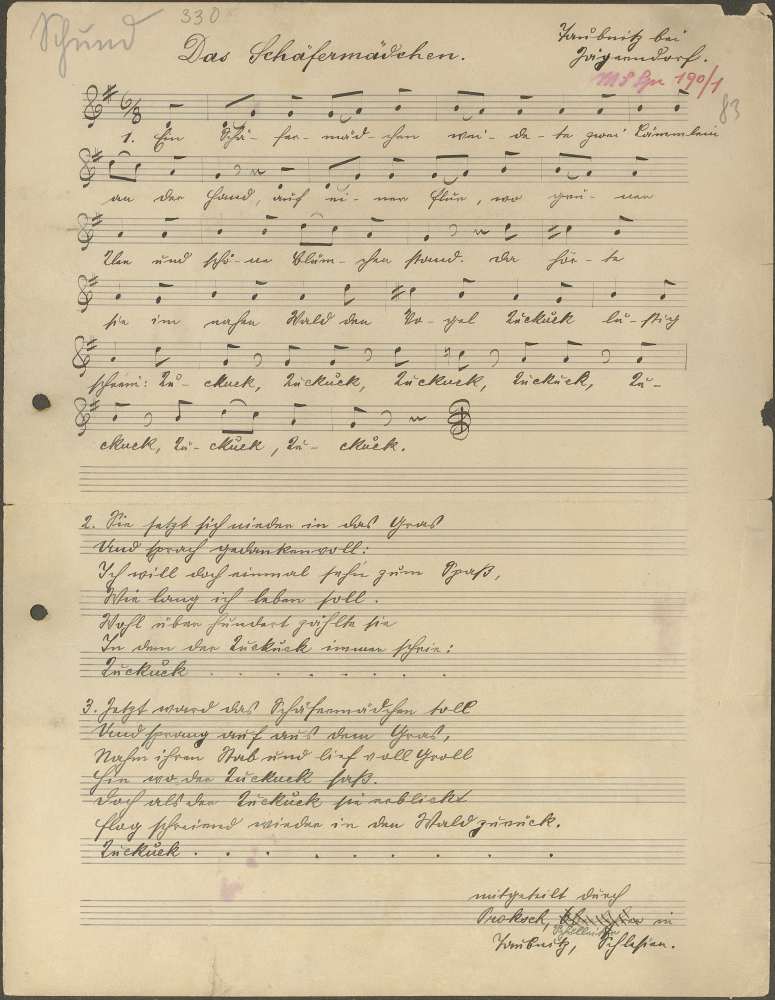 Schund
330
Das Schäfermädchen.
Taubnitz bei
Jägerndorf.
190/1
83
1. Ein Schä- fer- mäd- chen wei- de- te zwei Lämmlein
an der Hand, auf ei- ner Flur, wo grü- ner
Klee und schö- ne Blüm- chen stand. da hör- te
sie im nahen Wald den Vo- gel Kuckuck lu- stig
schrein: Ku- ckuck, Kuckuck, Kuckuck, Kuckuck, Ku-
ckuck, Ku- ckuck, Ku- ckuck.
2. Sie setzt sich nieder in das Gras
Und sprach gedankenvoll:
Ich will doch einmal sehn zum Spaß,
Wie lang ich leben soll.
Wohl über hundert zählte sie
In dem der Kuckuck immer schrie:
Kuckuck . . . . . . .
3. Jetzt ward das Schäfermädchen toll
Und sprang auf aus dem Gras,
Nahm ihren Stab und lief voll Groll
Hin wo der Kuckuck saß.
Doch als der Kuckuck sie erblickt
flog schreiend wieder in den Wald zurück.
Kuckuck . . . . . . . . . .
mitgeteilt durch
Proksch, in
Taubnitz, Schlesien.